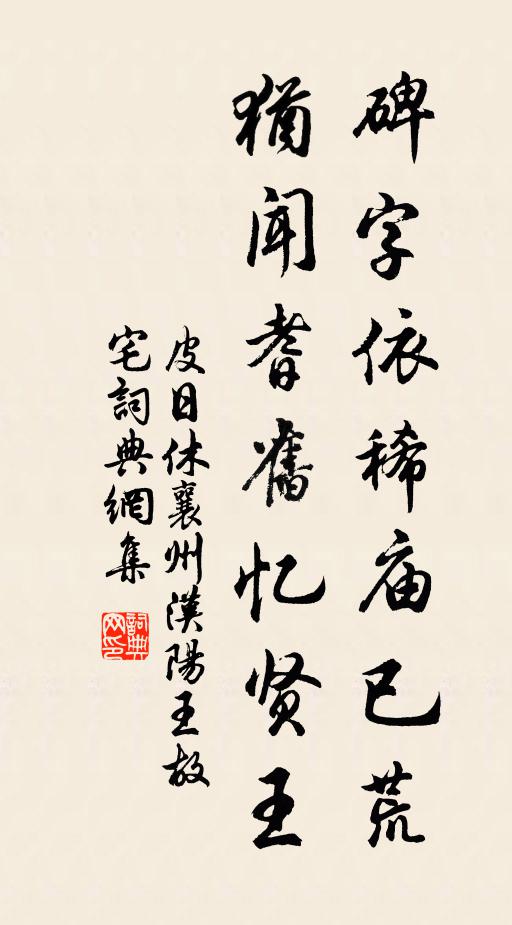 碑字依稀庙已荒
猶闻耆舊忆贤王
皮日休襄州漢陽王故
宅詞典網集
詞典网印